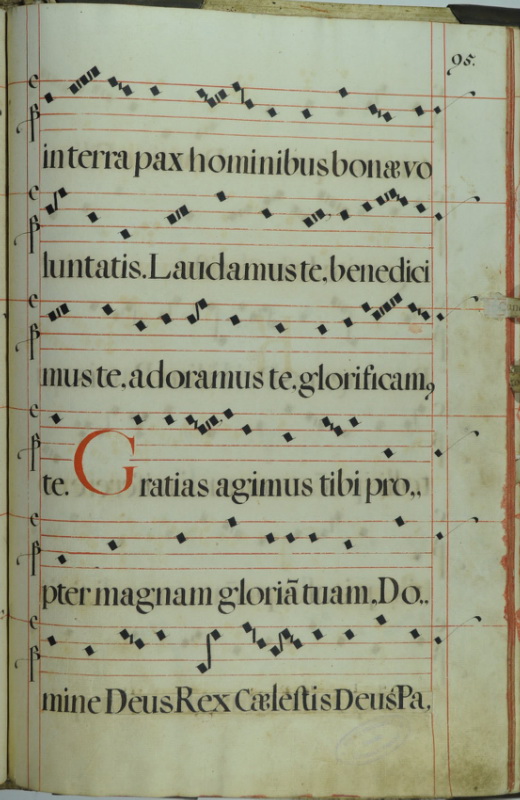 95.
in terra pax hominibus bonæ vo
luntatis. Laudamus te, benedici
mus te. adoramus te. glorificamꝰ
te. Gratias agimus tibi pro,,
pter magnam gloriã tuam. Do,,
mine Deus Rex Cæleſtis Deus Pa,